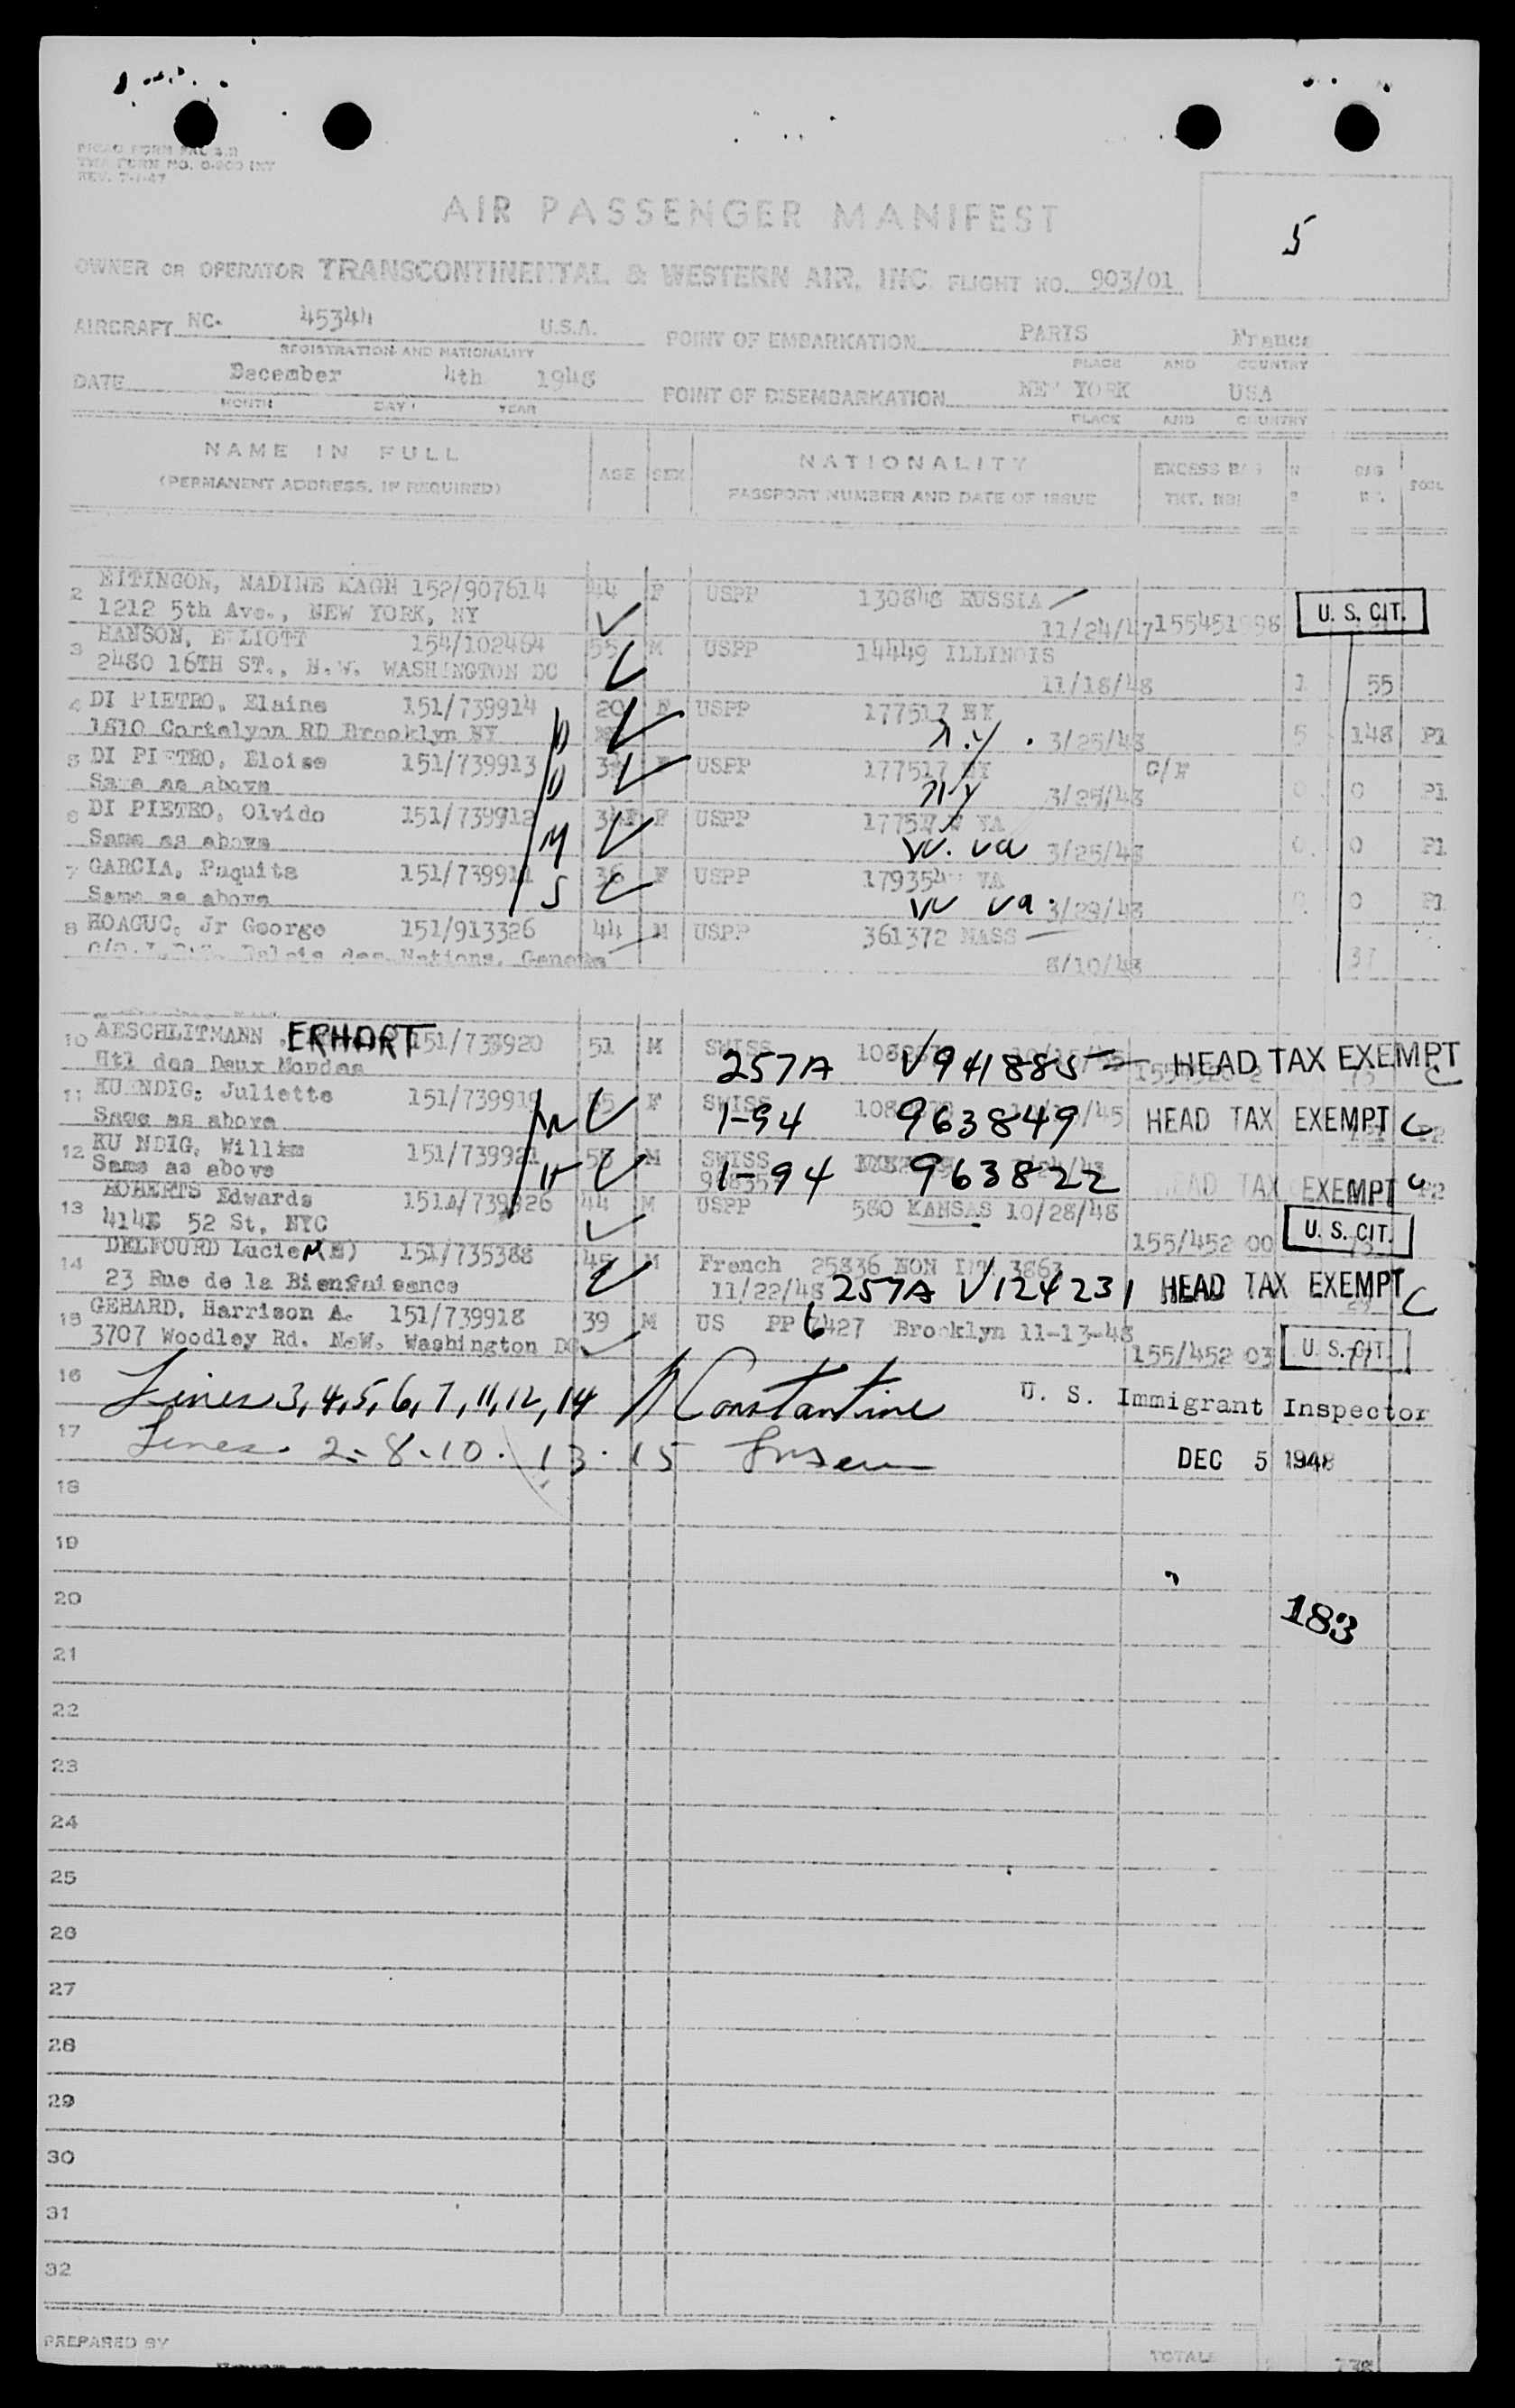 TWA FORM NO. 0-800 INT
REV. 7-1-47
AIR PASSENGER MANIFEST
5
OWNER OR OPERATOR TRANSCONTINENTAL & WESTERN AIR, INC. FLIGHT NO. 903/01
AIRCRAFT NC. 45344 U.S.A. POINT OF EMBARKATION PARIS France
REGISTRATION AND NATIONALITY PLACE AND COUNTRY
DATE December 4th 1948 POINT OF DISEMBARKATION NEW YORK USA
MONTH DAY YEAR PLACE AND COUNTRY
NAME IN FULL AGE SEX NATIONALITY EXCESS BAG
(PERMANENT ADDRESS, IF REQUIRED) PASSPORT NUMBER AND DATE OF ISSUE TKT. NO.
2 EITINGON, NADINE KAGN 152/907614 44 F USPP 130848 RUSSIA
1212 5th Ave., NEW YORK, NY 11/24/47 U. S. CIT.
3 HANSON, ELLIOTT 154/102464 55 M USPP 14449 ILLINOIS
2480 16TH ST., N.W. WASHINGTON DC 11/18/48 1 55
4 DI PIETRO, Elaine 151/739914 20 F USPP 177517 NY
1810 Cortelyon RD Brooklyn NY D N.Y. 3/25/48 5 148 P1
5 DI PIETRO, Eloise 151/739913 USPP 177517 NY C/F
Same as above D NY 3/25/48 0 0 P1
6 DI PIETRO, Olvido 151/739912 34 F USPP VA
Same as above M W. Va 3/25/48 0 0 P1
7 GARCIA, Paquita 151/739911 36 F USPP 179354 VA
Same as above S W Va. 3/29/48 0 0 P1
8 HOAGUC, Jr George 151/913326 44 M USPP 361372 MASS
Palais des Nations, Geneva 8/10/48 37
10 AESCHLITMANN, ERHART 151/738920 51 M SWISS
Htl des Deux Mondes 257A V941885 HEAD TAX EXEMPT C
11 KUENDIG, Juliette 151/739919 F SWISS
Same as above 1-94 963849 HEAD TAX EXEMPT C
12 KU NDIG, Willim 151/739921 M SWISS
Same as above 1-94 963822 HEAD TAX EXEMPT C
13 ROBERTS Edwards 151A/739926 44 M USPP 580 KANSAS 10/28/48
414E 52 St, NYC 155/452 00 U. S. CIT.
14 DELFOURD Lucien(E) 151/735388 45 M French 25836 NON IMM 3863
23 Rue de la Bienfaisance 11/22/48 257A V124231 HEAD TAX EXEMPT C
15 GEHARD, Harrison A. 151/739918 39 M US PP 67427 Brooklyn 11-13-48
3707 Woodley Rd. N.W. Washington DC 155/452 03 U. S. CIT.
16 Lines 3, 4, 5, 6, 7, 11, 12, 14 N Constantine U. S. Immigrant Inspector
17 Lines. 2. 8. 10. 13. 15 DEC 5 1948
18
19
20
183
21
22
23
24
25
26
27
28
29
30
31
32
PREPARED BY TOTALS